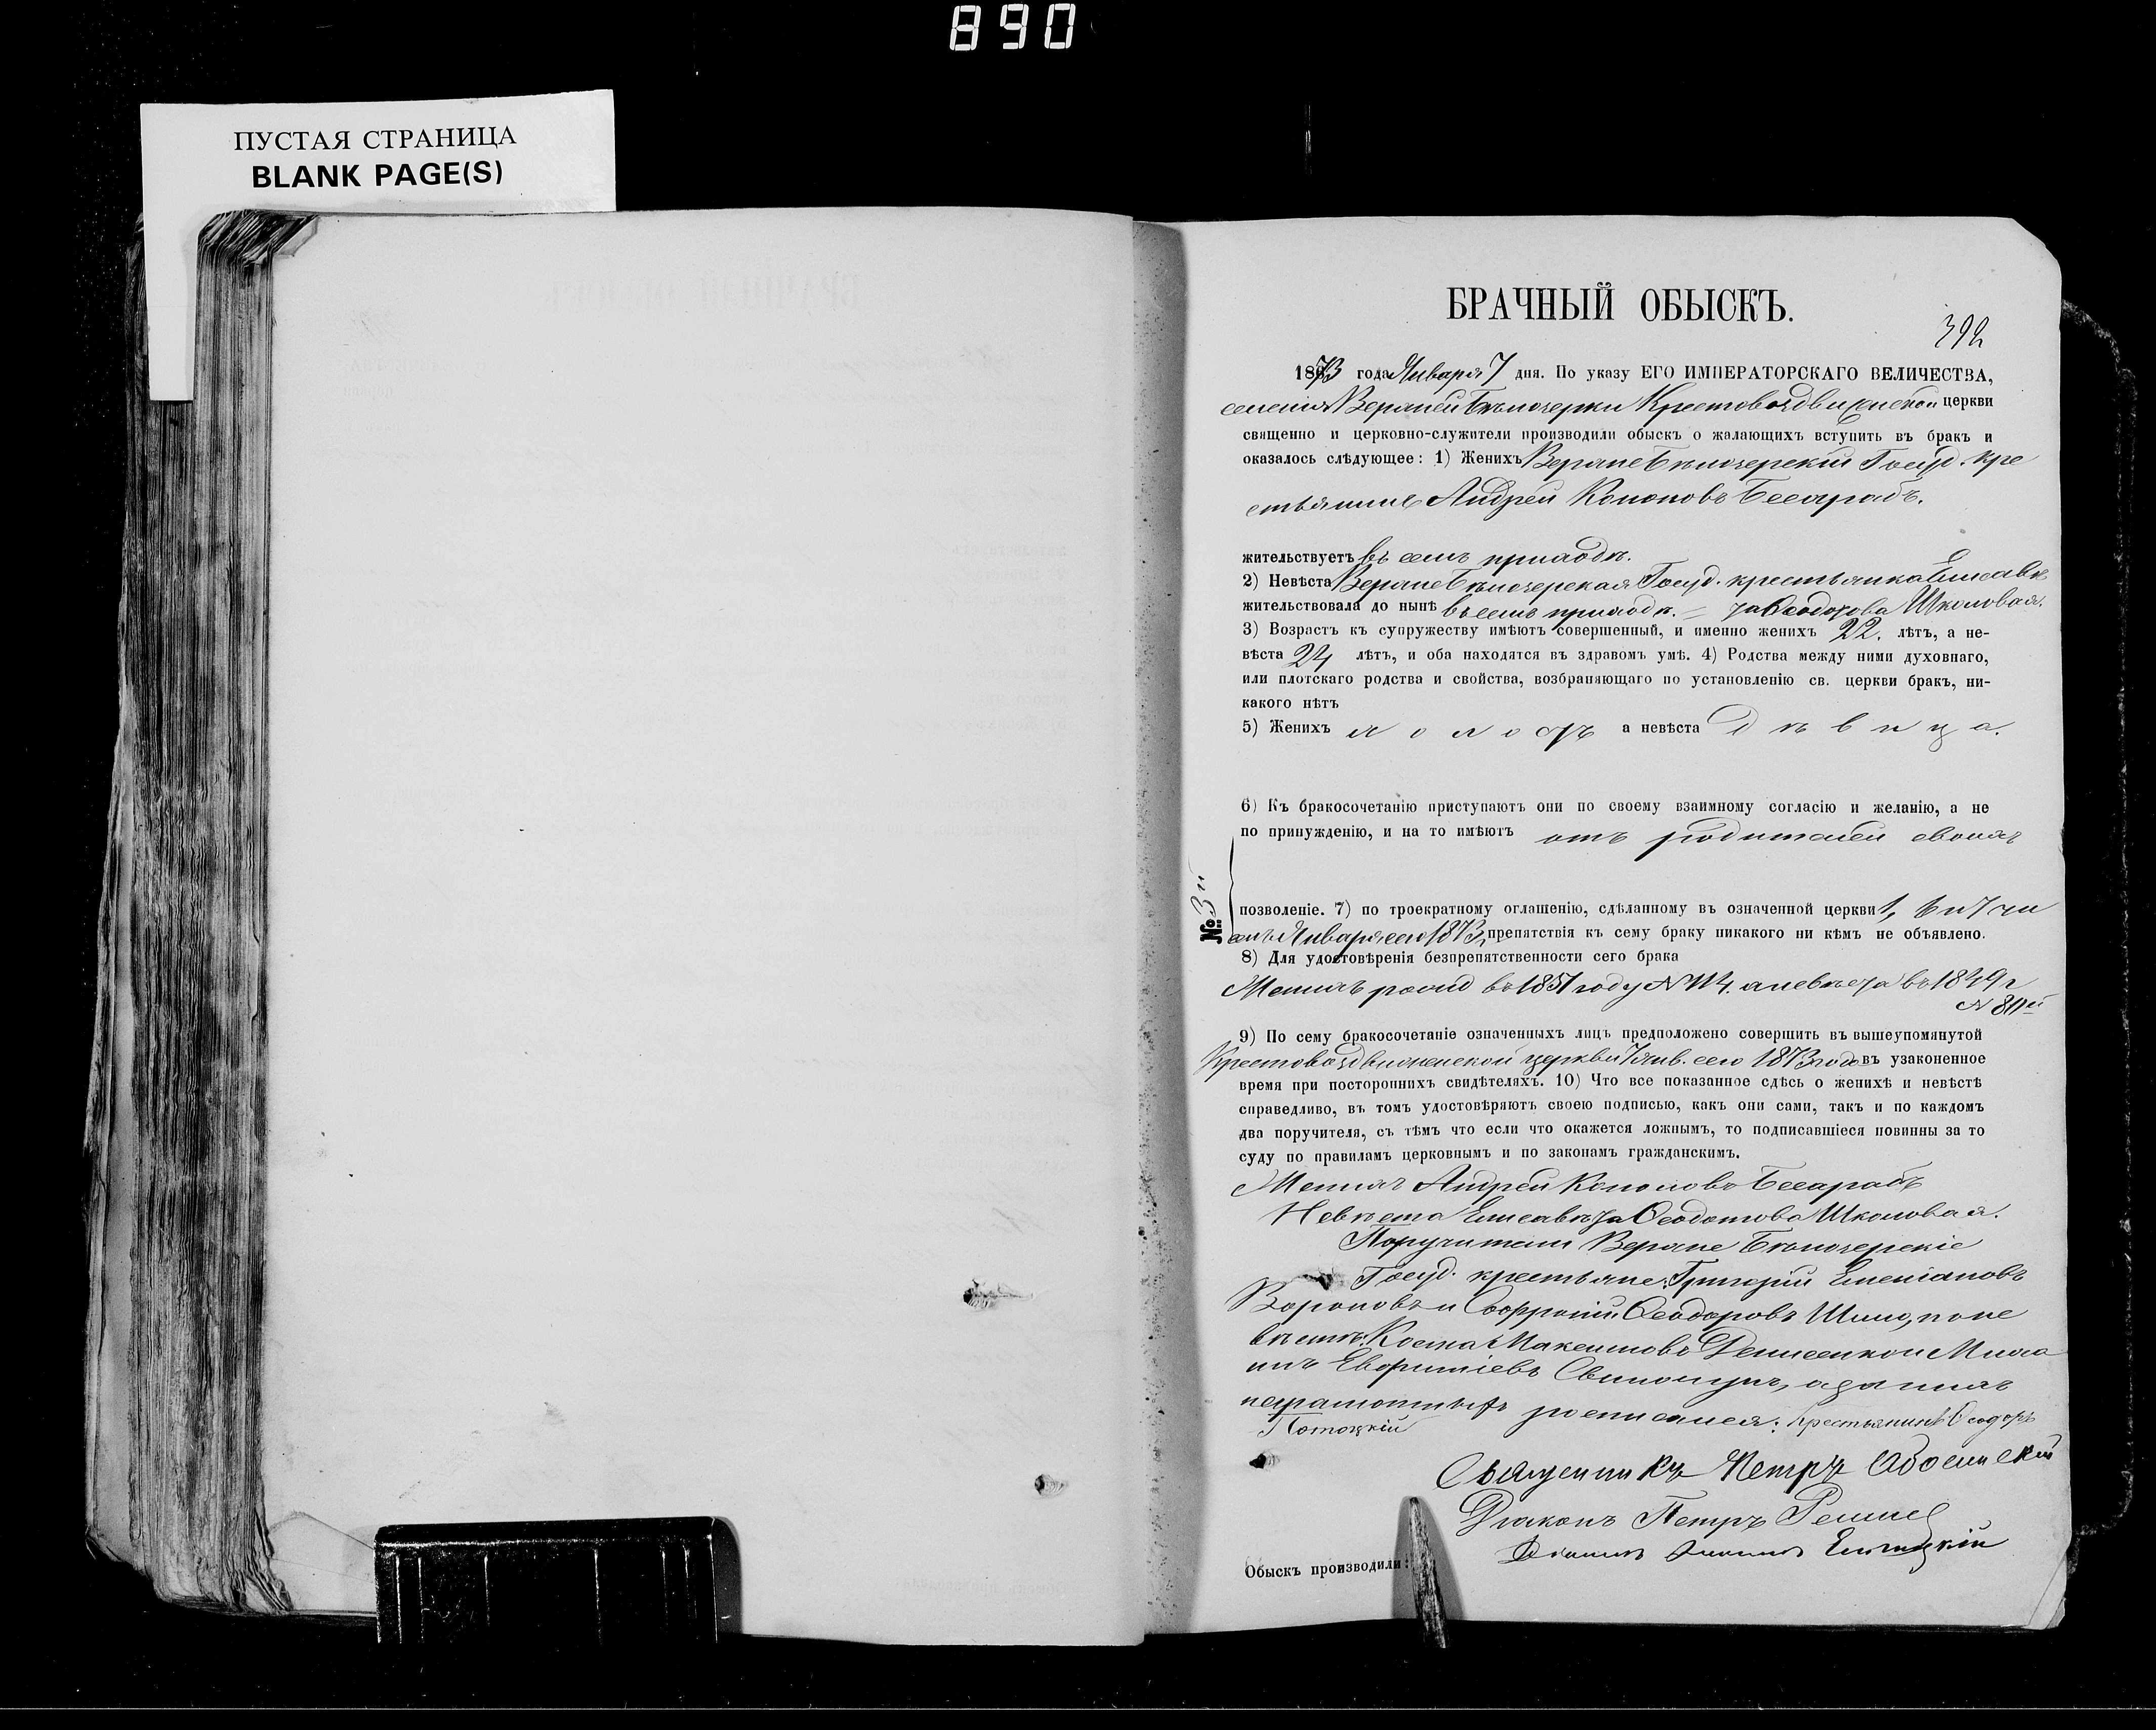 890
ПУСТАЯ СТРАНИЦА
BLANK PAGE(S)
БРАЧНЫЙ ОБЫСКЪ.
392
1873 года Января 7 дня. По указу ЕГО ИМПЕРАТОРСКАГО ВЕЛИЧЕСТВА,
селенія Верхней Бѣлозерки Крестовоздвиженской церкви
священно и церковно-служители производили обыскъ о жалающихъ вступить въ бракъ и
оказалось слѣдующее: 1) Женихъ Верхнебѣлозерскій Госуд. кре
стьянинъ Андрей Кононовъ Бесарабъ.
жительствуетъ въ семъ приходѣ.
2) Невѣста Верхнебѣлозерская Госуд. крестьянка Елисавѣ
жительствовала до нынѣ въ семъ приходѣ. – та Ѳеодотова Школовая.
3) Возрастъ къ супружеству имѣютъ совершенный, и именно женихъ 22. лѣтъ, а не-
вѣста 24 лѣтъ, и оба находятся въ здравомъ умѣ. 4) Родства между ними духовнаго,
или плотскаго родства и свойства, возбраняющаго по установленію св. церкви бракъ, ни-
какого нѣтъ
5) Женихъ холостъ а невѣста дѣвица.
6) Къ бракосочетанію приступаютъ они по своему взаимному согласію и желанію, а не
по принужденію, и на то имѣютъ отъ родителей своихъ
№ 3й
позволеніе. 7) по троекратному оглашенію, сдѣланному въ означенной церкви 1, 6 и 7 чи
селъ Января сего 1873 препятствія къ сему браку никакого ни кѣмъ не объявлено.
8) Для удостовѣренія безпрепятственности сего брака
Женихъ рожд въ 1851 году № 114. а невѣста въ 1849 г
№ 80й
9) По сему бракосочетаніе означенныхъ лицъ предположено совершить въ вышеупомянутой
Крестовоздвиженской церкви 7 янв. сего 1873 года въ узаконенное
время при постороннихъ свидѣтеляхъ. 10) Что все показанное сдѣсь о женихѣ и невѣстѣ
справедливо, въ томъ удостовѣряютъ своею подписью, какъ они сами, такъ и по каждомъ
два поручителя, съ тѣмъ что если что окажется ложнымъ, то подписавшіеся повинны за то
суду по правиламъ церковнымъ и по законамъ гражданскимъ.
Женихъ Андрей Кононовъ Бесарабъ
Невѣста Елисавѣта Ѳеодотова Школовая.
Поручители Верхне Бѣлозерскіе
Госуд. крестьяне: Григорій Емеліановъ
Вороновъ и Софроній Ѳеодоровъ Шило, по не
вѣстѣ: Косма Максимовъ Денисенко и Миха
илъ Евфиміевъ а за нихъ
неграмотныхъ росписался: Крестьянинъ Ѳеодоръ
Потоцкій
Священникъ Петръ
Діаконъ Петръ
Обыскъ производили: